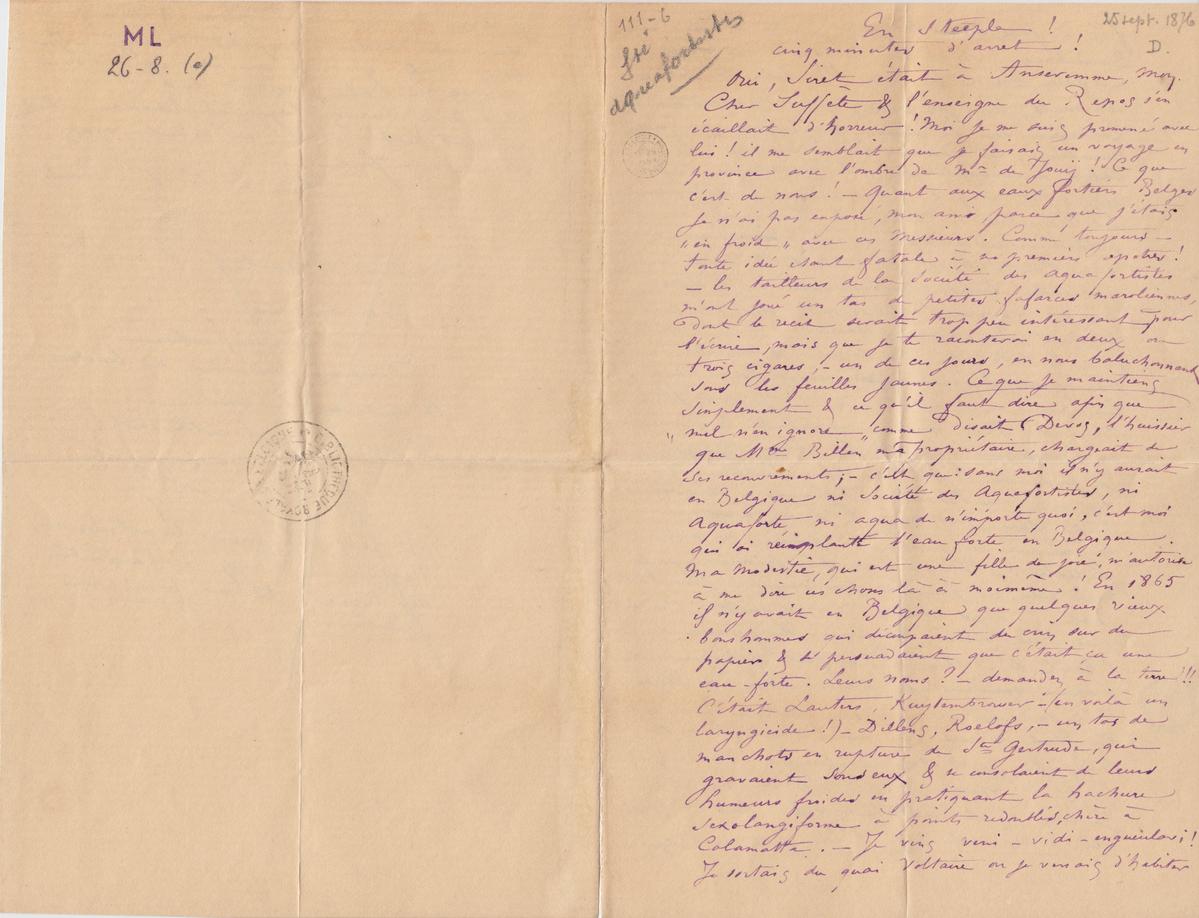 ML
26-8. (a)
111-6
Sté
aquafortistes
25 sept. 1876
D.
En Steeple !
cinq minutes d'arret !
Oui, Siret était à Anseremme, mon
Cher Suffète & l'enseigne du Repos s'en
écaillait d'horreur ! Moi je me suis promené avec
lui ! il me semblait que je faisais un voyage en
province avec l'ombre de Mr de Jouÿ ! Ce que
c'est de nous ! — Quant aux eaux fortiers Belges
Je n'ai pas exposé, mon ami, parce que j'étais
"en froid" avec ces Messieurs. Comme toujours —
toute idée étant fatale à ses premiers apotres !
— les tailleurs de la Société des Aquafortistes
m'ont joué un tas de petites fafarces maroliennes,
Dont le recit serait trop peu intéressant pour
l'écrire, mais que je te raconterai en deux ou
trois cigares, — un de ces jours, en nous baluchonnant
sous les feuilles jaunes. Ce que je maintiens
simplement & ce qu'il faut dire afin que
"nul n'en ignore" comme disait Devos, l'huissier
que Mme Billen ma propriétaire, chargeait de
ses recouvrements ; — c'est que sans moi il n'y aurait
en Belgique ni Société des Aquafortistes, ni
Aquaforte ni aqua de n'importe quoi, c'est moi
qui ai réimplanté l'eau forte en Belgique.
Ma Modestie, qui est une fille de joie, m'autorise
à me dire ces choses là à moimême ! En 1865
il n'y avait en Belgique que quelques vieux
bonshommes qui découpaient du crin sur du
papier & se persuadaient que c'était ça une
eau-forte. Leurs noms ? — demandez à la terre !!
C'était Lauters, Kuytenbrower — (en voilà un
laryngicide !) — Dillens, Roelofs, — un tas de
manchots en rupture de Ste Gertrude, qui
gravaient sous eux & se consolaient de leurs
humeurs froides en pratiquant la hachure
à points redoublés, chère à
Calamatta. — Je vins veni — vidi — engueulavi !
Je sortais du quai Voltaire où je venais d'habiter